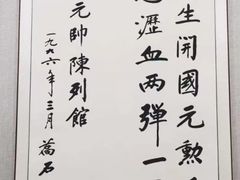 生開國元勳
瀝血两弹一
元帥陳列館
一九九六年三月 喬石